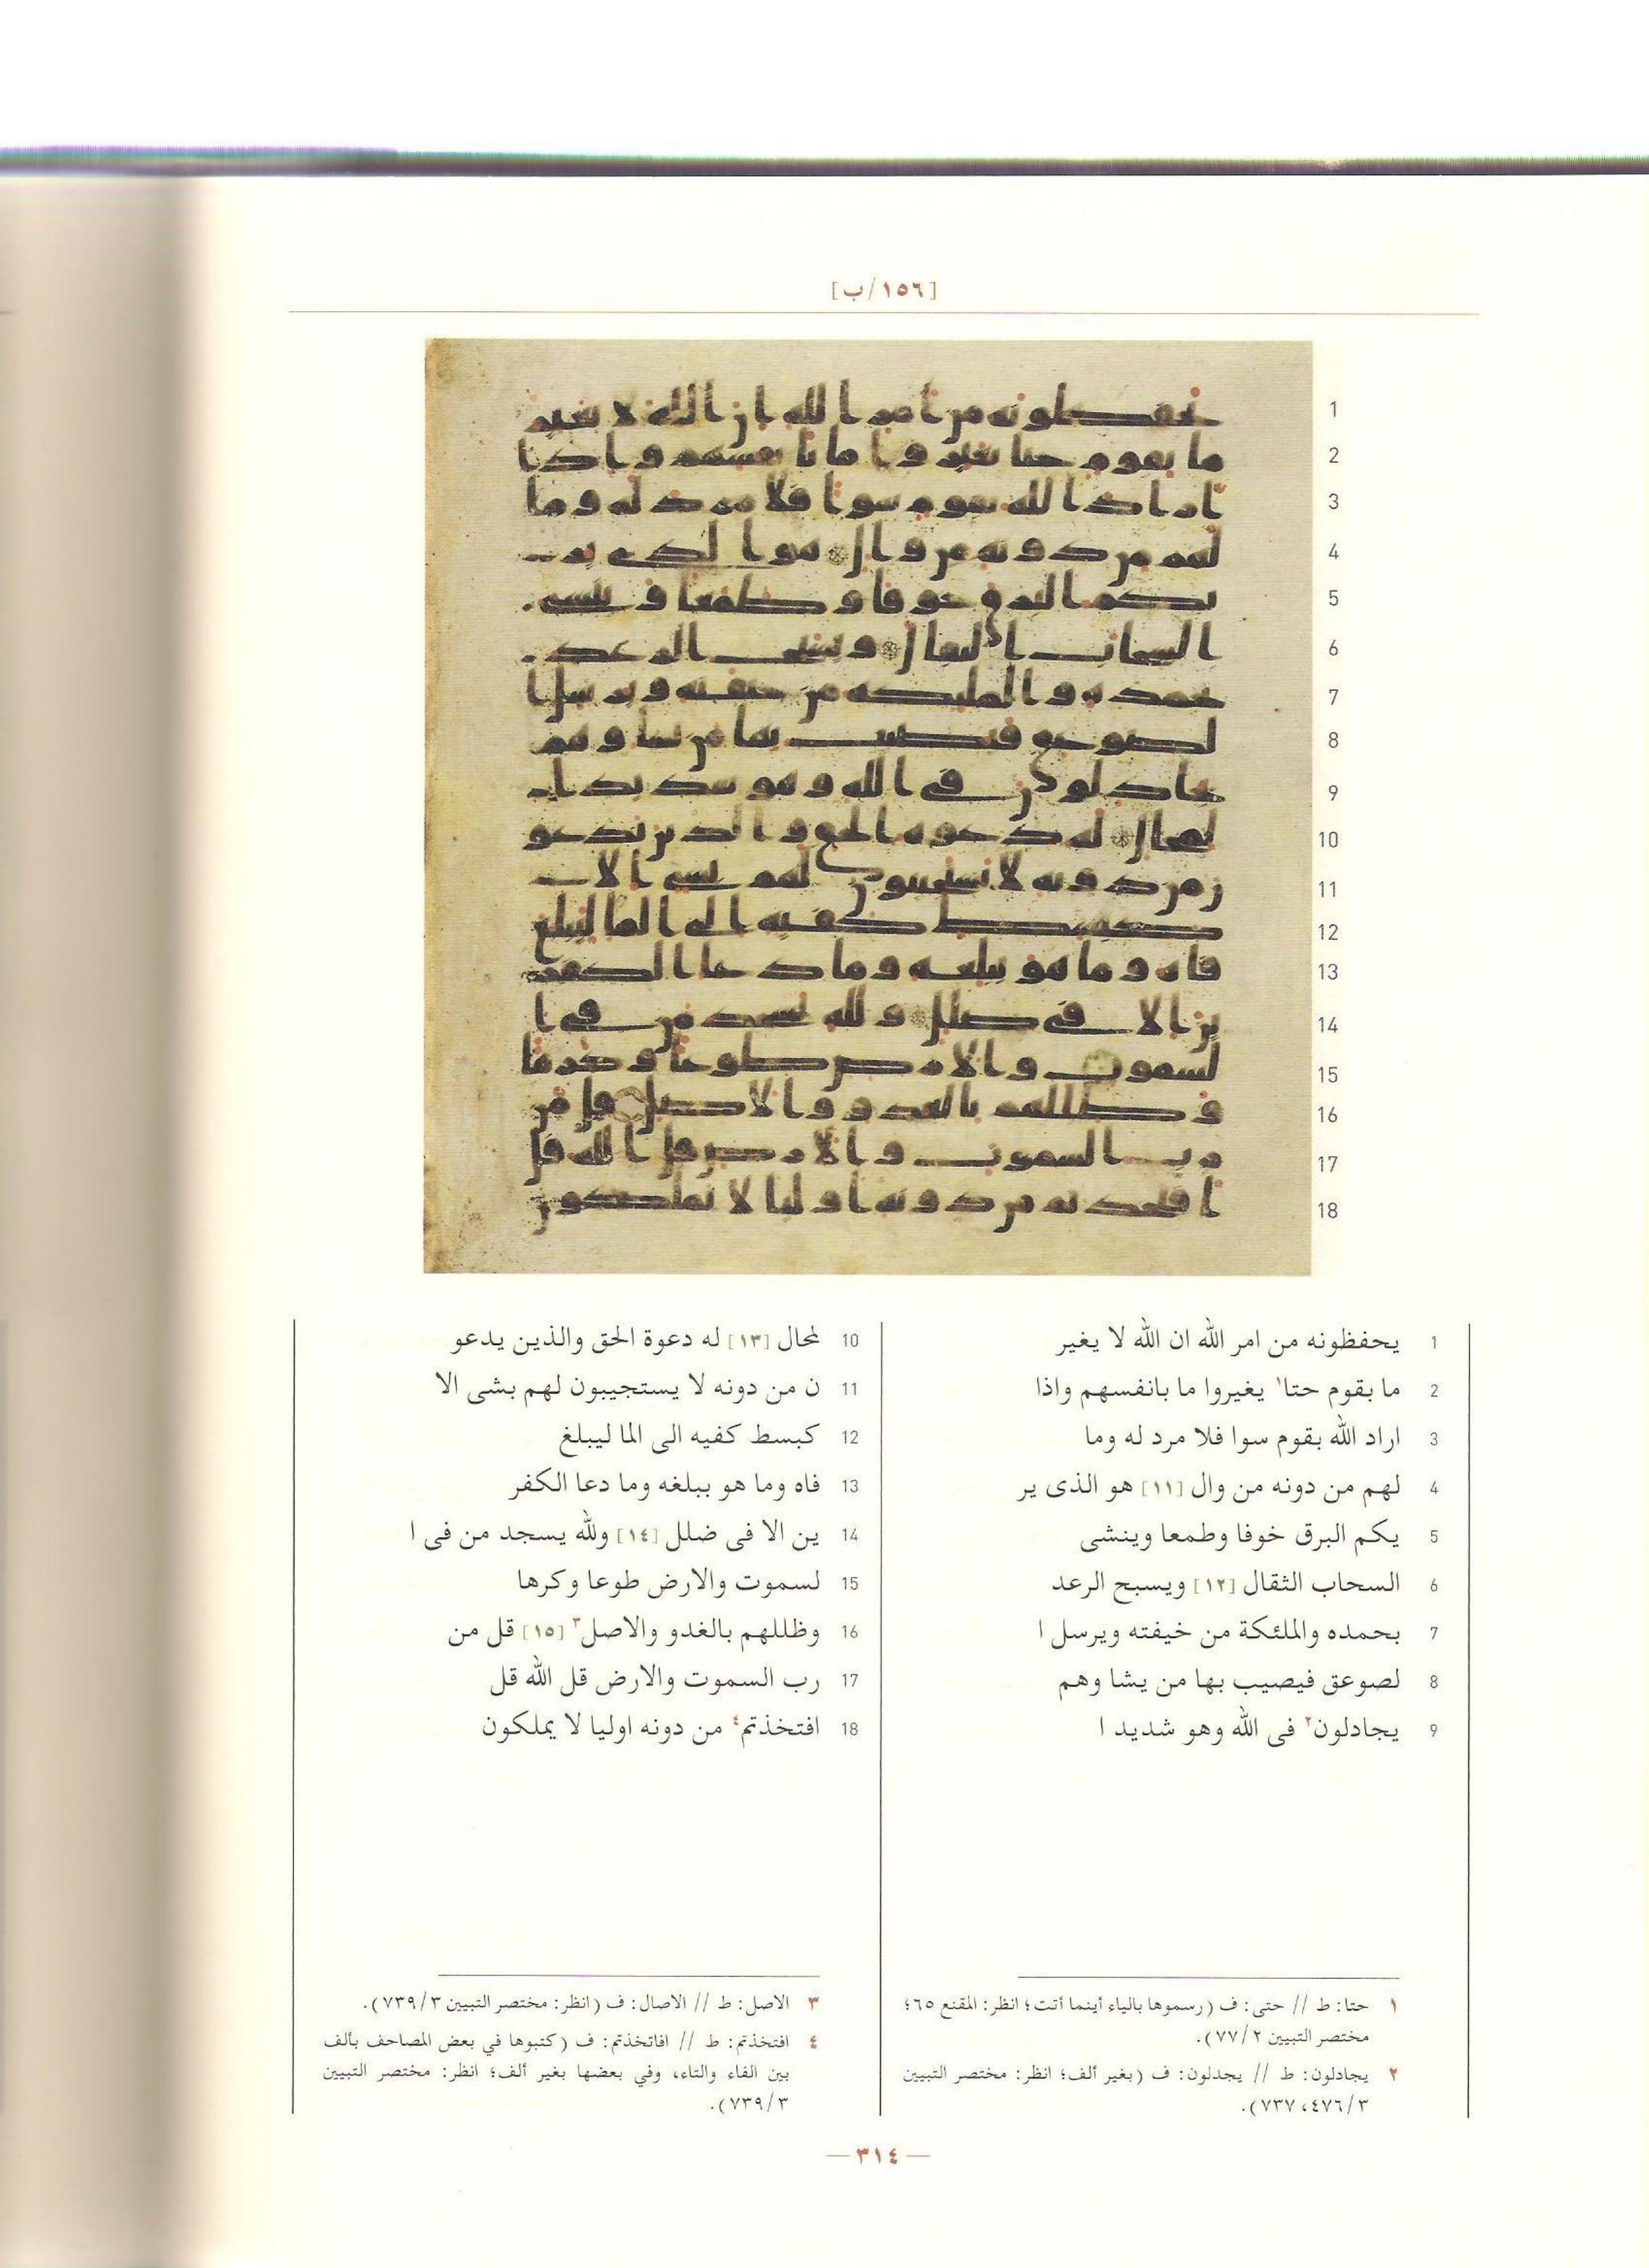 [١٥٦/ب]
1 يحفظونه من امر الله ان الله لا يغير
2 ما بقوم حتا١ يغيروا ما بانفسهم واذا
3 اراد الله بقوم سوا فلا مرد له وما
4 لهم من دونه من وال [١١] هو الذى ير
5 يكم البرق خوفا وطمعا وينشى
6 السحاب الثقال [١٢] ويسبح الرعد
7 بحمده والملئكة من خيفته ويرسل ا
8 لصوعق فيصيب بها من يشا وهم
9 يجادلون٢ فى الله وهو شديد ا
10 لمحال [١٣] له دعوة الحق والذين يدعو
11 ن من دونه لا يستجيبون لهم بشى الا
12 كبسط كفيه الى الما ليبلغ
13 فاه وما هو ببلغه وما دعا الكفر
14 ين الا فى ضلل [١٤] ولله يسجد من فى ا
15 لسموت والارض طوعا وكرها
16 وظللهم بالغدو والاصل٣ [١٥] قل من
17 رب السموت والارض قل الله قل
18 افتخذتم٤ من دونه اوليا لا يملكون
١ حتا: ط // حتى: ف (رسموها بالياء أينما أتت؛ انظر: المقنع ٦٥؛
مختصر التبيين ٢/ ٧٧).
٢ يجادلون: ط // يجدلون: ف (بغير ألف؛ انظر: مختصر التبيين
٣/ ٤٧٦، ٧٣٧).
٣ الاصل: ط // الاصال: ف (انظر: مختصر التبيين ٣/ ٧٣٩).
٤ افتخذتم: ط // افاتخذتم: ف (كتبوها في بعض المصاحف بألف
بين الفاء والتاء، وفي بعضها بغير ألف؛ انظر: مختصر التبيين
٣/ ٧٣٩).
— ٣١٤ —